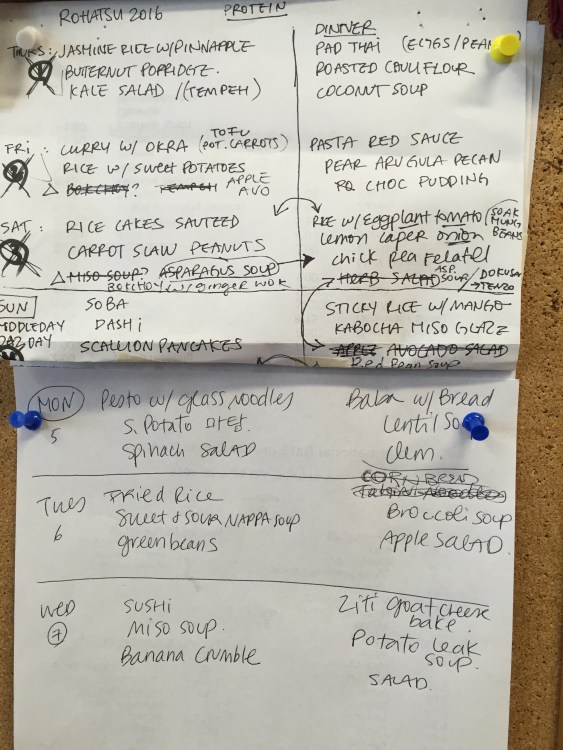 ROHATSU 2016
PROTEIN
DINNER
THURS: JASMINE RICE W/PINNAPPLE
BUTERNUT PORRIDGE.
KALE SALAD /(TEMPEH)
PAD THAI (EGGS/PEAN
ROASTED CAULIFLOUR
COCONUT SOUP
FRI : CURRY W/ OKRA (TOFU
POT. CARROTS)
RICE W/ SWEET POTATOES
BOKCHOY? TEMPEH APPLE
AVO
PASTA RED SAUCE
PEAR ARUGULA PECAN
CHOC PUDDING
SAT: RICE CAKES SAUTEED
CARROT SLAW PEANUTS
MISO SOUP? ASPARAGUS SOUP
BOKCHOY w/ginger wok
RICE W/Eggplant tomato (SOAK
MUNG
BEANS
lemon caper onion
chick pea Felafel
HERB SALAD ASP.
SOUP / DOKUSAN
→TENZO
SUN
MIDDLEDAY
DAY
SOBA
DASHI
SCALLION PANCAKES
STICKY RICE W/ MANGO
KABOCHA MISO GLAZE
APPLE AVOCADO SALAD
Red Bean soup
MON
5
Pesto w/ glass noodles
S. Potato 마탕.
Spinach SALAD
Baba w/ Bread
Lentil So
Clem.
Tues
6
Fried Rice
Sweet & Sour NAPPA SOUP
greenbeans
CORN BREAD
Broccoli soup
Apple SALAD.
Wed
7
SUSHI
MISO SOUP.
Banana Crumble
Ziti goat cheese
bake.
Potato leak
soup.
SALAD.